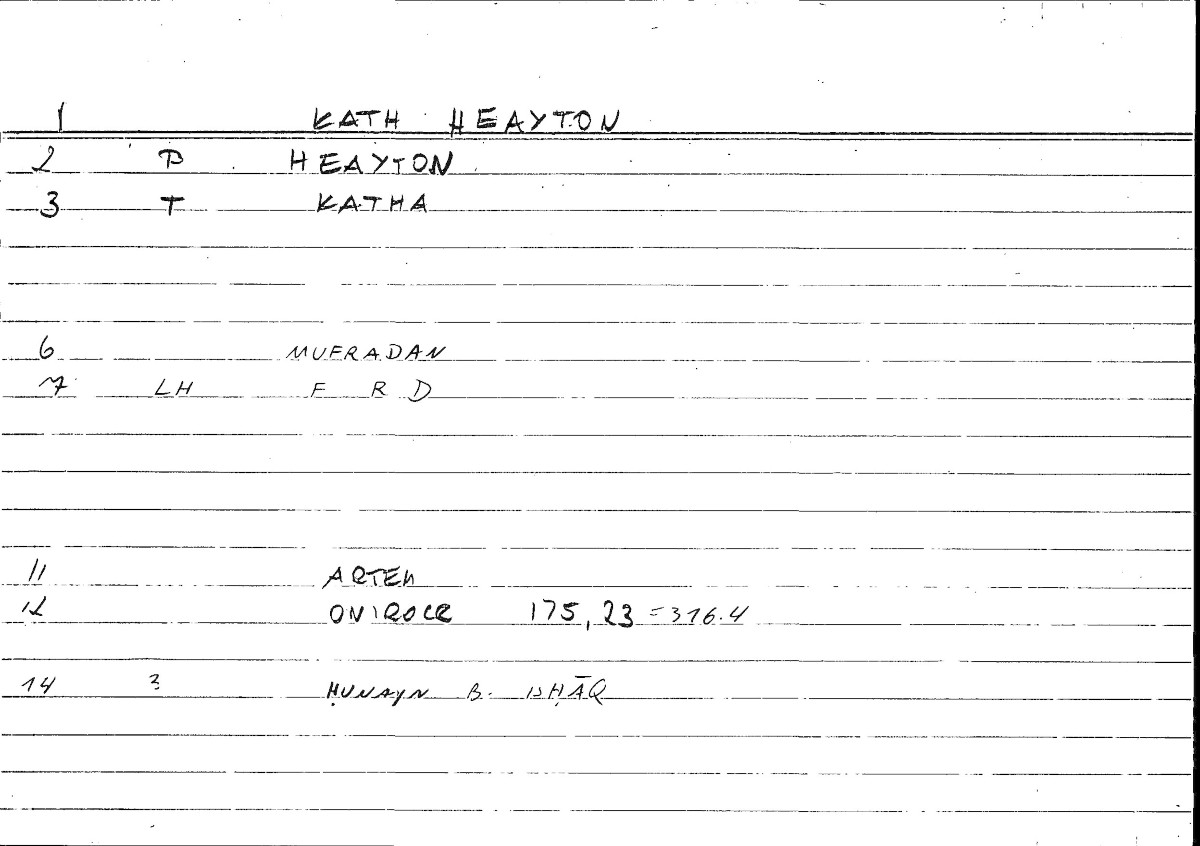 1 KATH HEAYTON
2 P HEAYTON
3 T KATHA
6 MUFRADAN
7 LH F R D
11 ARTEM
12 ONIROCR 175,23 =316.4
14 3 ḤUNAYN B. ISḤĀQ